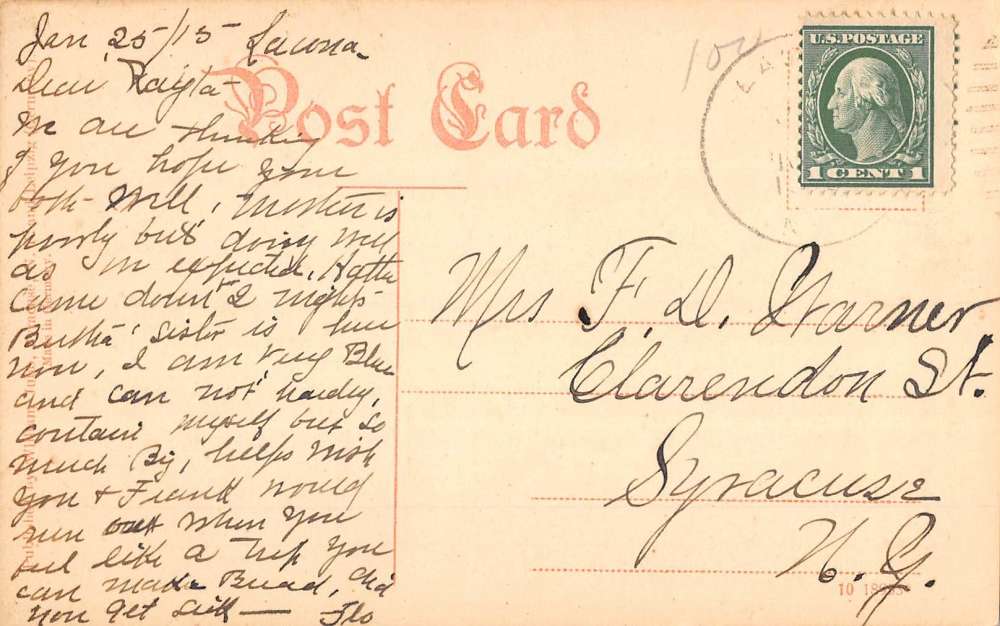 Jan 25/15 Lacona
Dear
We are thinking
of you hope your
both well, mother is
poorly but doing well
as we expected, Hattie
came down 2 nights
Bertha sister is here
now, I am very Blue
and can not hardly,
contain myself but so
much By, helps wish
you & Frank would
run out when you
feel like a trip you
can make Bread, did
you get sick — Flo
Post Card
U.S. POSTAGE
1 CENT 1
10c
Mrs F. D. Warner
Clarendon St.
Syracuse
N. Y.